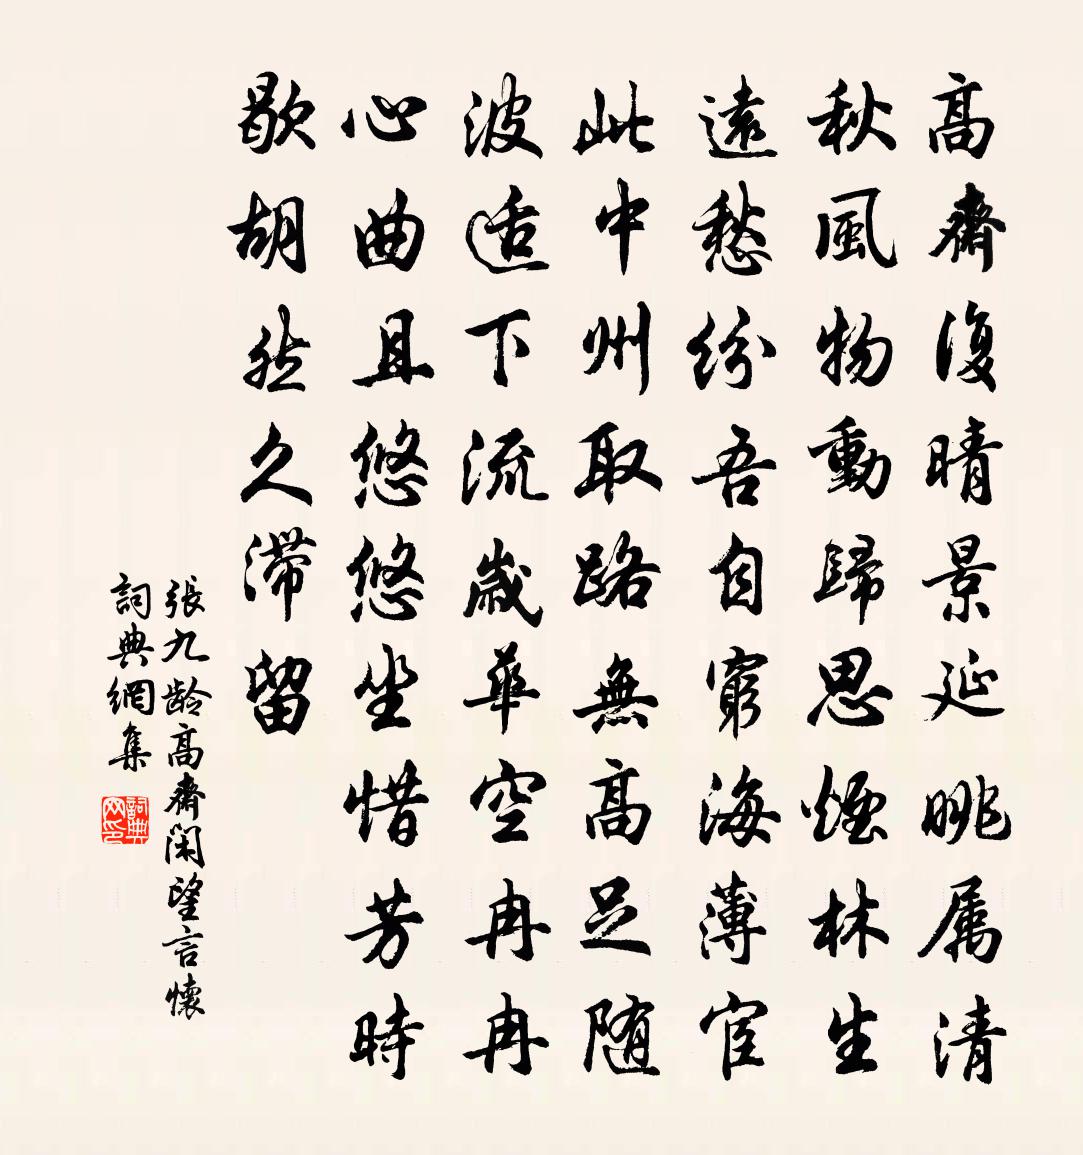 高齋復晴景延眺属清
秋風物動歸思煙林生
遠愁紛吾自窮海薄宦
此中州取路無高足随
波适下流歳華空冉冉
心曲且悠悠坐惜芳時
歇胡然久滞留
張九齡高齋閑望言懷
詞典網集
詞典
网印